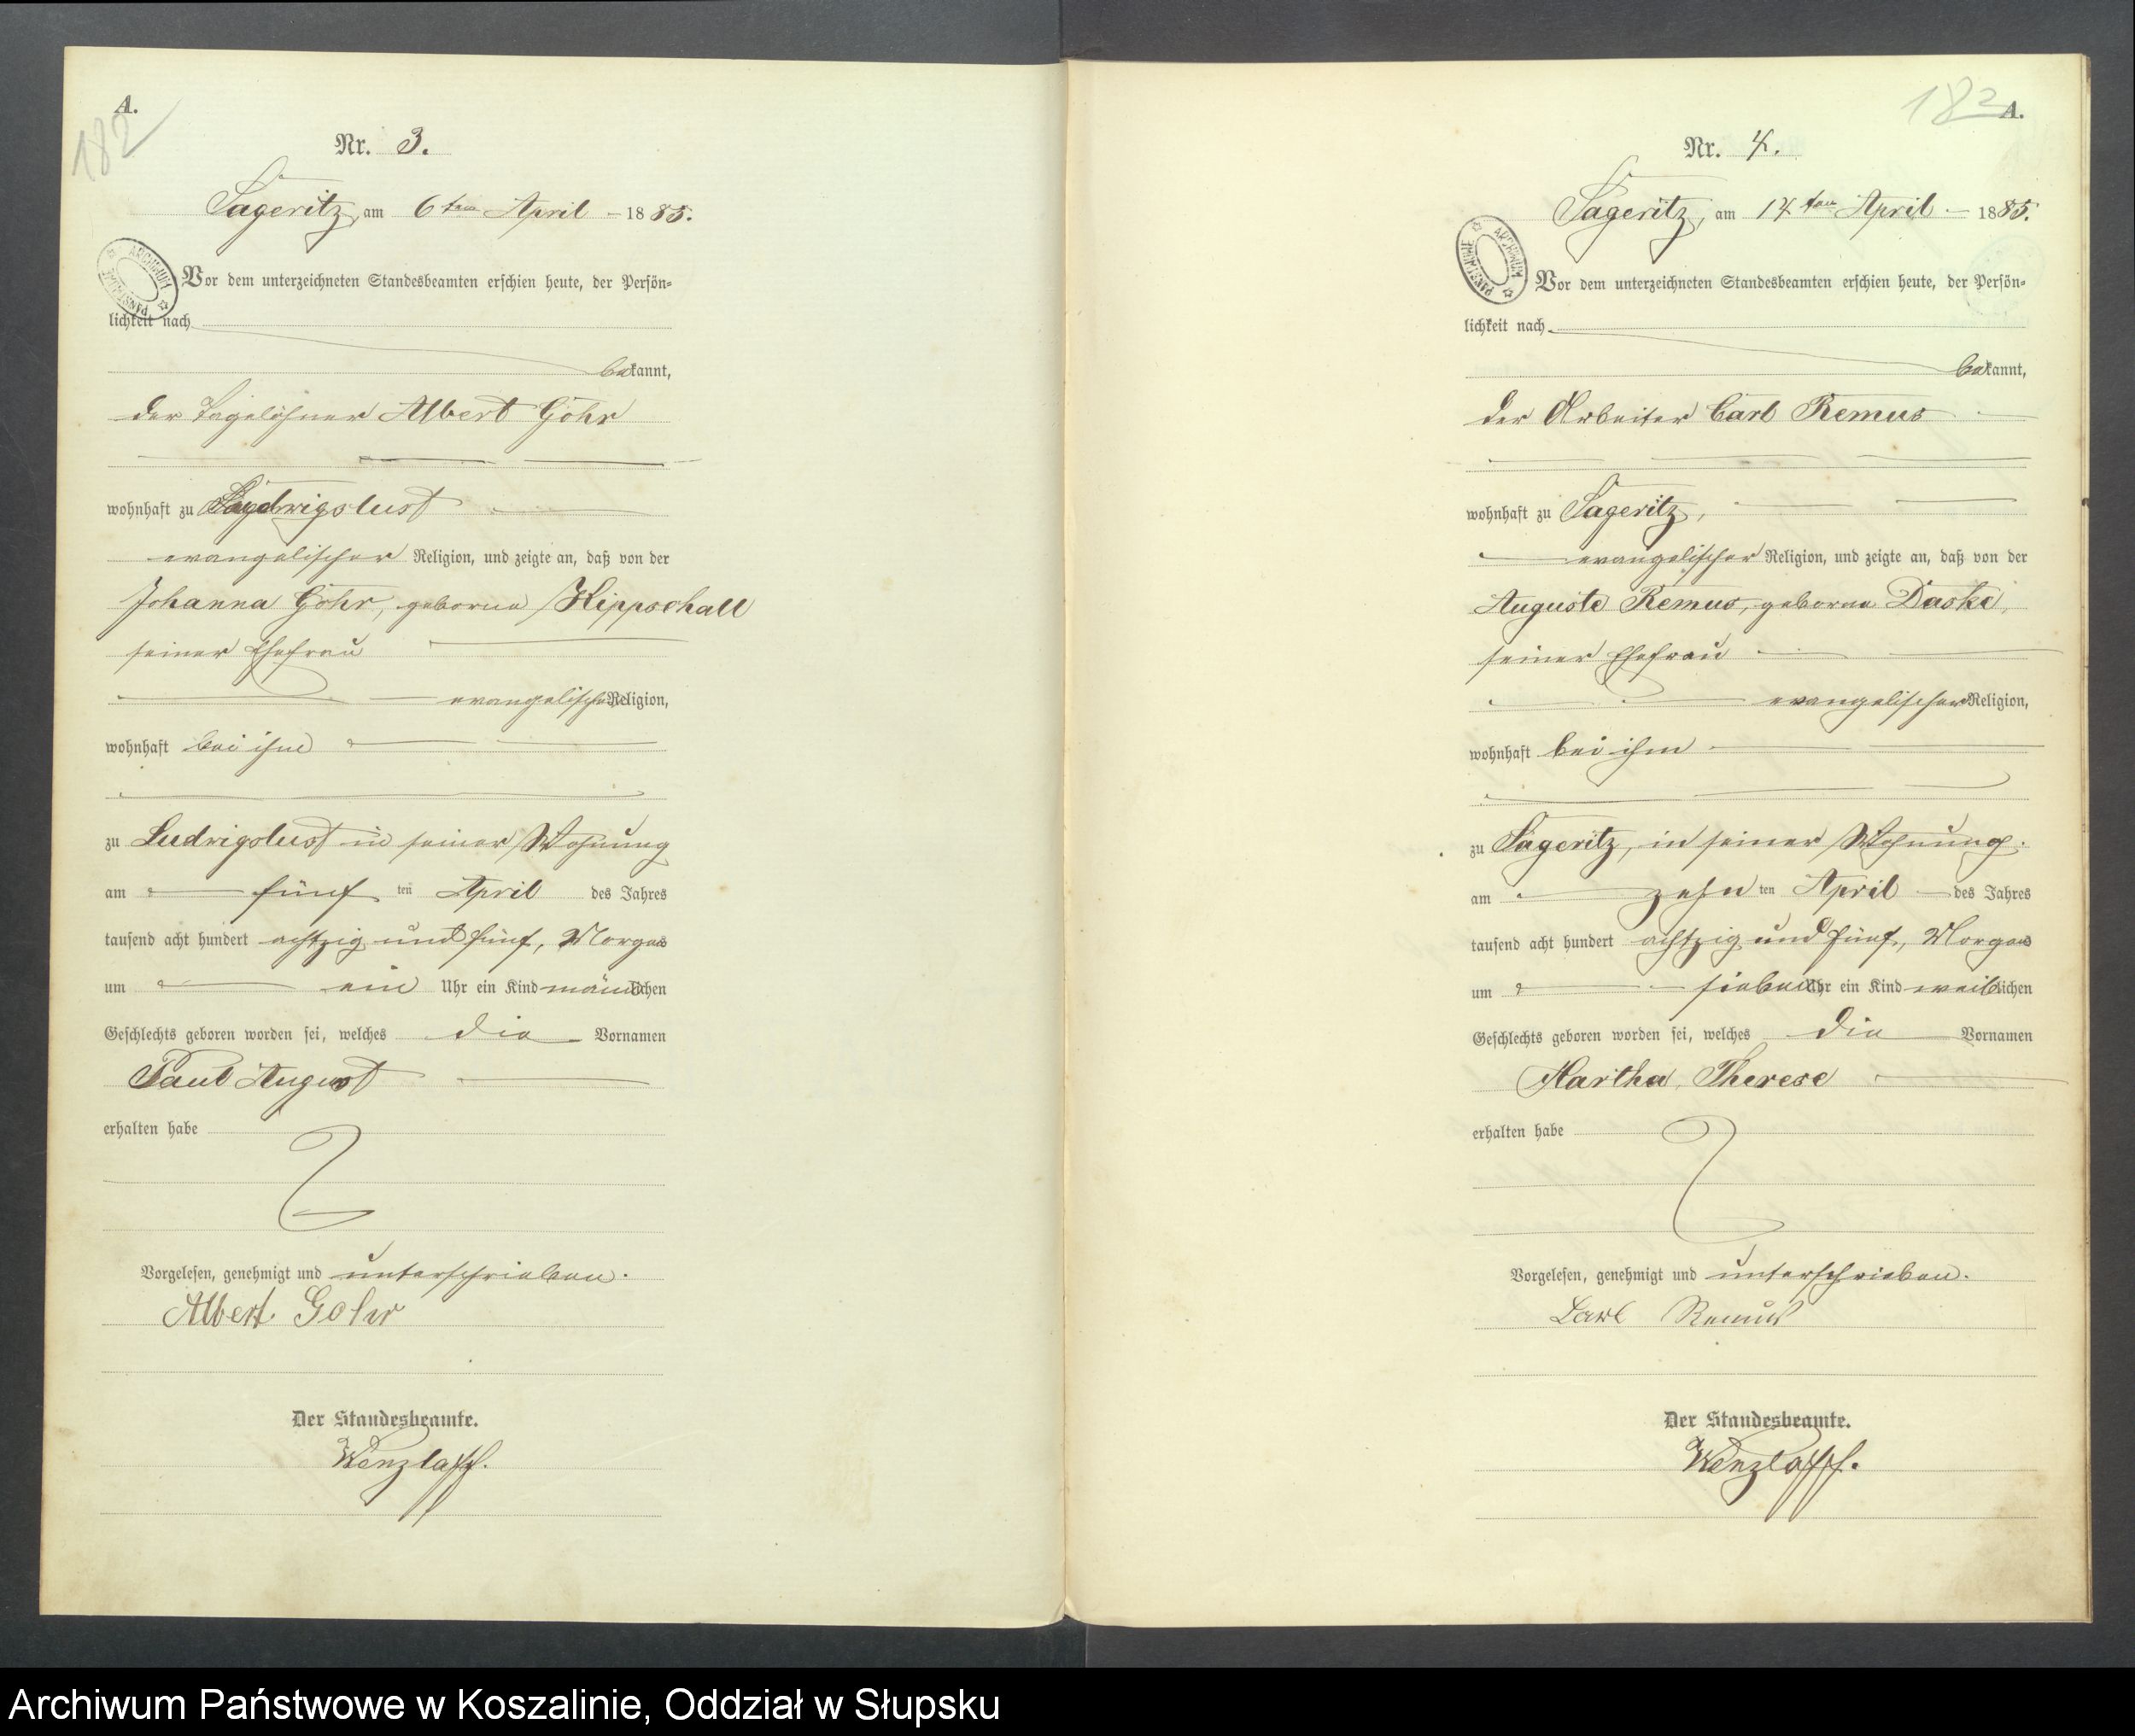 A.
182
Nr. 3.
Sageritz, am 6ten April 1885.
ARCHIWUM PAŃSTWOWE
Vor dem unterzeichneten Standesbeamten erschien heute, der Persön-
lichkeit nach
bekannt,
der Tagelöhner Albert Göhr
wohnhaft zu Ludwigslust
evangelischer Religion, und zeigte an, daß von der
Johanna Göhr, geborne Hippschall
seiner Ehefrau
evangelischer Religion,
wohnhaft bei ihm
zu Ludwigslust in seiner Wohnung
am fünften April des Jahres
tausend acht hundert achtzig und fünf, Morgens
um ein Uhr ein Kind männlichen
Geschlechts geboren worden sei, welches die Vornamen
Paul August
erhalten habe
Vorgelesen, genehmigt und unterschrieben.
Albert Gohr
Der Standesbeamte.
Wenzlaff.
182
A.
Nr. 4.
Sageritz, am 14ten April 1885.
ARCHIWUM PAŃSTWOWE
Vor dem unterzeichneten Standesbeamten erschien heute, der Persön-
lichkeit nach
bekannt,
der Arbeiter Carl Remus
wohnhaft zu Sageritz,
evangelischer Religion, und zeigte an, daß von der
Auguste Remus, geborne Daske,
seiner Ehefrau
evangelischer Religion,
wohnhaft bei ihm
zu Sageritz, in seiner Wohnung.
am zehnten April des Jahres
tausend acht hundert achtzig und fünf, Morgens
um sieben Uhr ein Kind weiblichen
Geschlechts geboren worden sei, welches die Vornamen
Martha Therese
erhalten habe
Vorgelesen, genehmigt und unterschrieben.
Carl Remus
Der Standesbeamte.
Wenzlaff.
Archiwum Państwowe w Koszalinie, Oddział w Słupsku